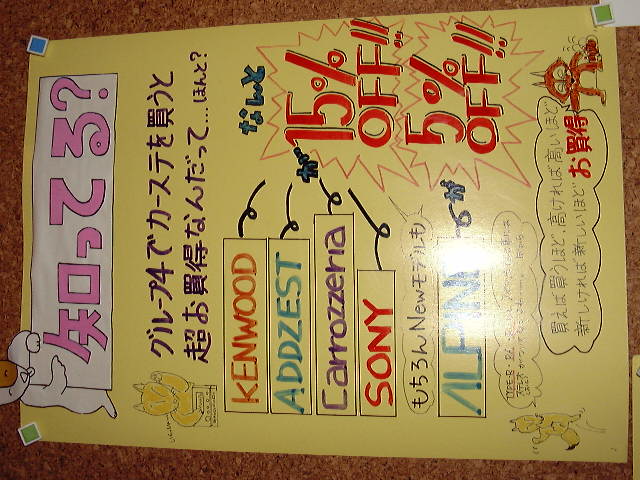 知ってる?
グループ4でカーステを買うと
超お買得なんだって…ほんと?
なんと
15%OFF!!
が
KENWOOD
ADDZEST
Carrozzeria
SONY
5%OFF!!!
が
もちろんNewモデルも
ALPINE
買えば買うほど、高ければ高いほど
新しければ新しいほどお買得